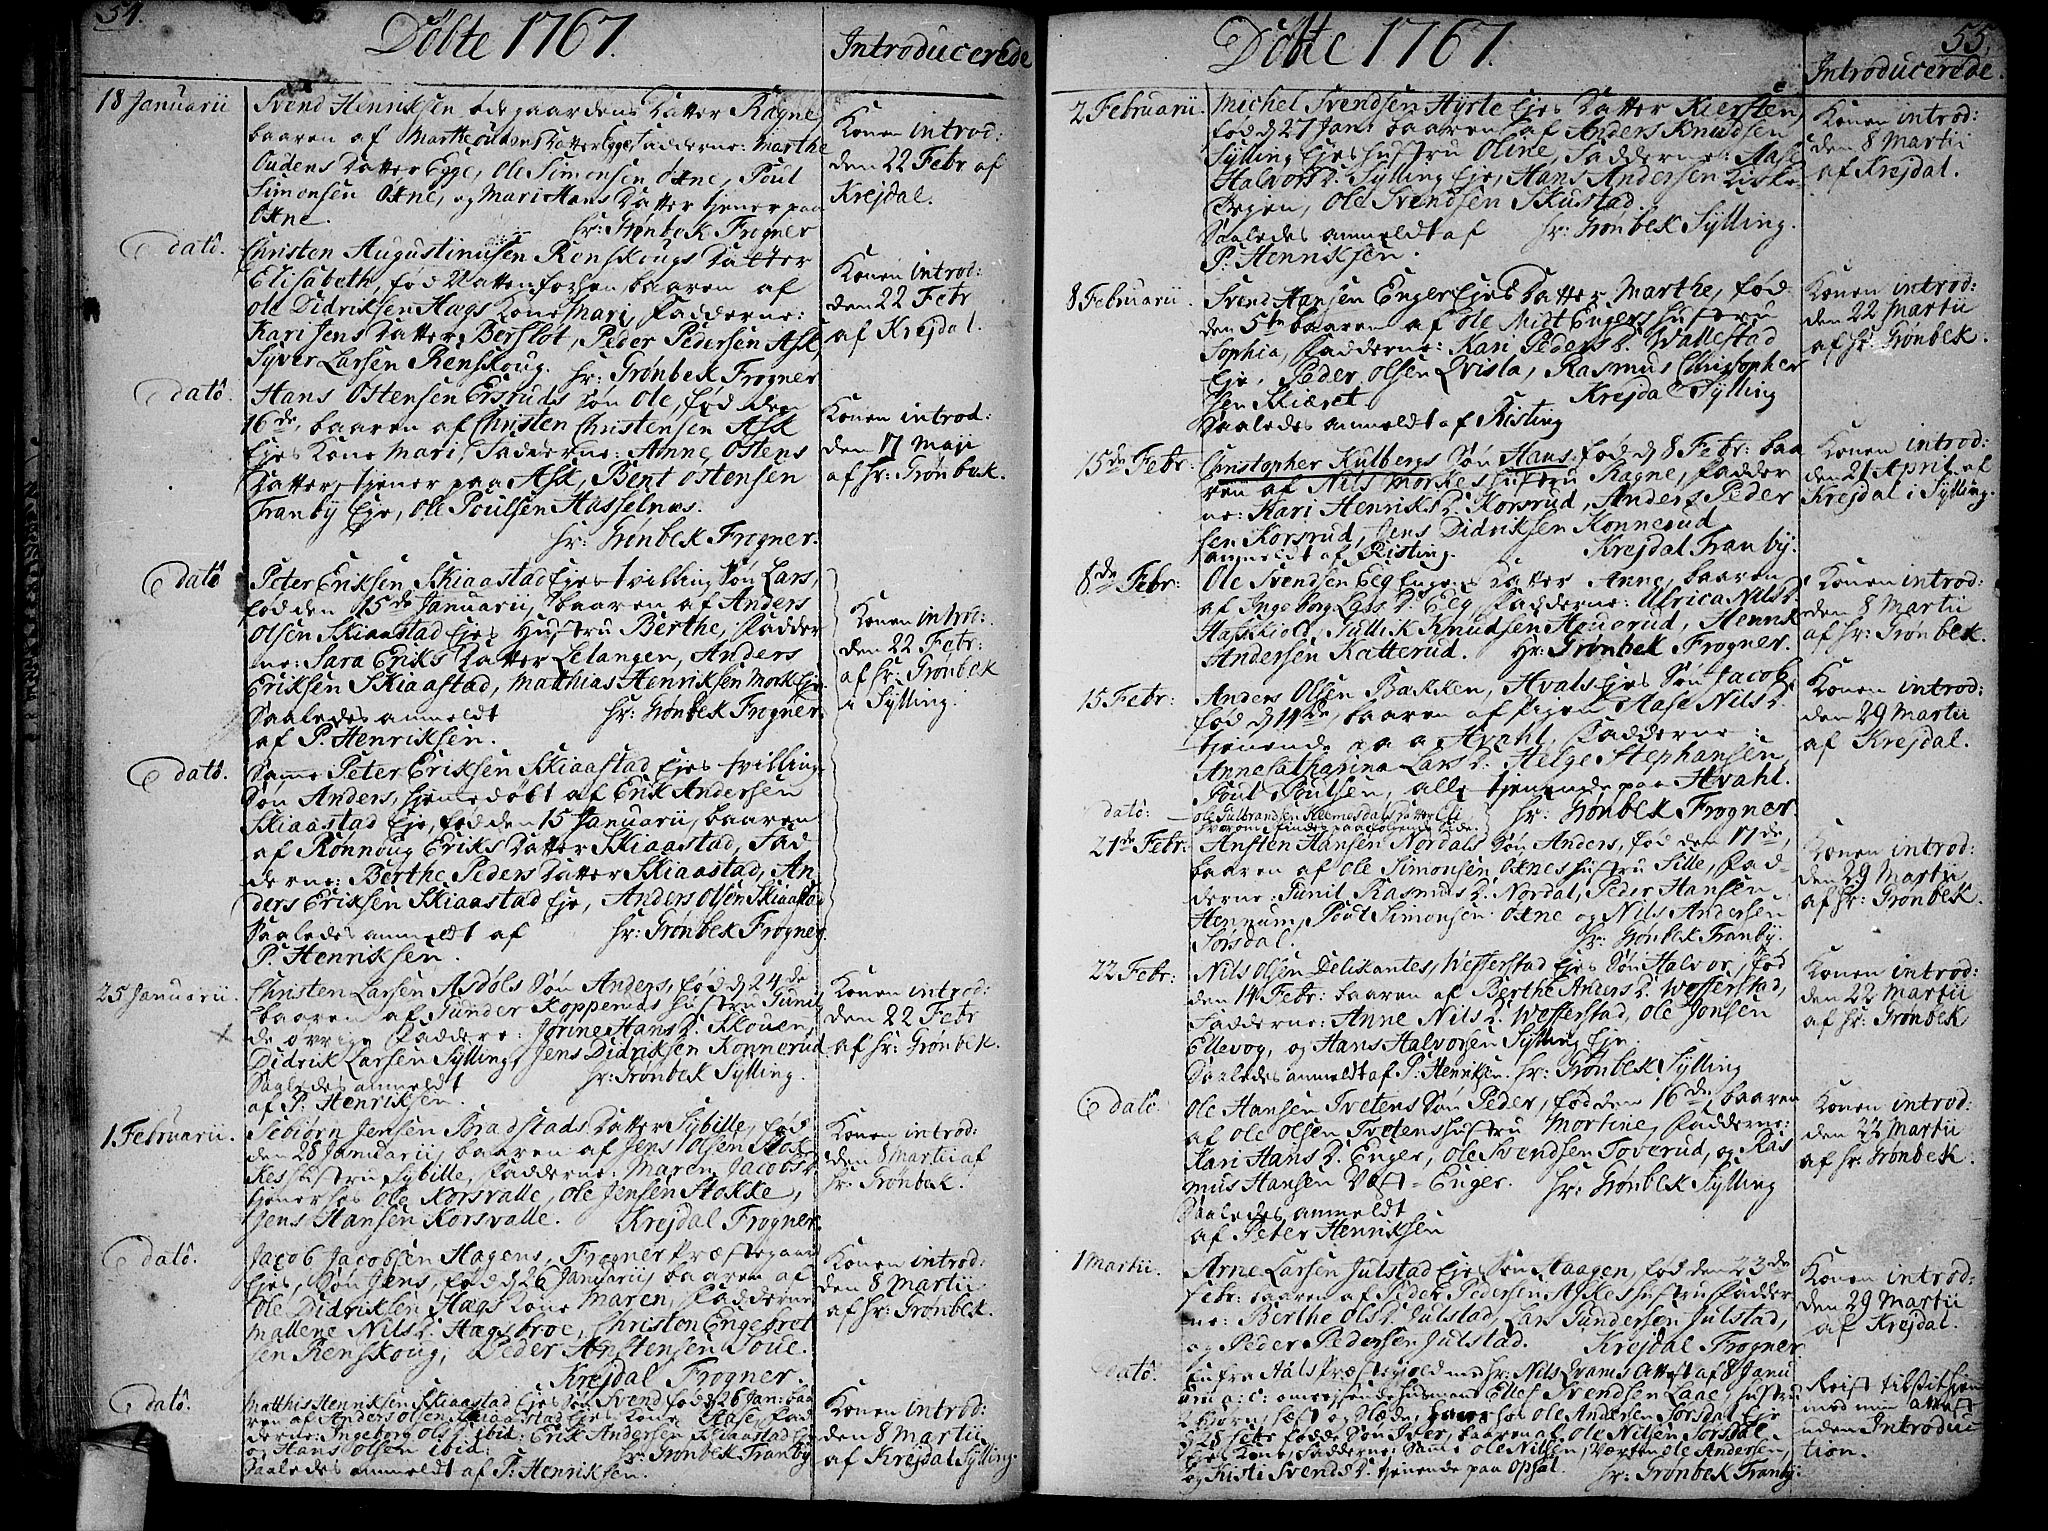 54.
Döbte 1767.
Introducerede
18 Januarii
Svend Henriksen ødegaardens Datter Ragne
baaren af Marthe oudens Datter Egge, Fadderne: Marthe
Oudens Datter Egge, Ole Simonsen Oxne, Poul
Simonsen Oxne, og Mari Hans Datter tjener paa
Oxne. hr: Grønbek Frogner
Konen introd:
den 22 Febr af
Krejdal.
dato.
Christen Augustinusen Renskougs Datter
Elisabeth, fød Natten forhen baaren af
Ole Didriksen Hags Kone Mari, Fadderne:
Kari Jens Datter Berslot, Peder Pedersen Ask,
Syver Larsen Renskoug. hr: Grønbek Frogner
Konen introd:
den 22 Febr
af Krejdal.
dato.
Hans Ostensen Ersruds Søn Ole, fød den
16de, baaren af Christen Christensen Ask
Ejes Kone Mari, Fadderne: Anne Ostens
Datter, tjener paa Ask, Bent Ostensen
Tranby Eje, Ole Poulsen Hasselnæs.
hr: Grønbek Frogner.
Konen introd:
den 17 Maji
af hr: Grønbek.
dato
Peter Eriksen Skiaastad Ejes tvilling Søn Lars,
fød den 15de Januarii, baaren af Anders
Olsen Skiaastad Ejes Hustru Berthe, Fadder
ne: Sara Eriks Datter Lelangen, Anders
Eriksen Skiaastad, Matthias Henriksen Mork Eje.
Saaledes anmeldt hr: Grønbek Frogner.
af P. Henriksen.
Konen introd:
den 22 Febr:
af hr: Grønbek
i Sylling.
dato.
Samme Peter Eriksen Skiaastad Ejes tvilling
Søn Anders, hjemedøbt af Erik Andersen
Skiaastad Eje, fød den 15 Januarii, baaren
af Rønnoug Eriks Datter Skiaastad, Fad
derne: Berthe Peders Datter Skiaastad, An
ders Eriksen Skiaastad Eje, Anders Olsen Skiaastad
Saaledes anmeldt af hr: Grønbek Frogner.
P. Henriksen.
25 Januarii.
Christen Larsen Asdøls Søn Anders, fød d 24de
baaren af Gunder Kopperuds Hustru Gunil
de øvrige Faddere: Jorine Hans D. Skouen,
Didrik Larsen Sylling, Jens Didriksen Konnerud
Saaledes anmeldt hr: Grønbek Sylling.
af P. Henriksen.
Konen introd:
den 22 Febr
af hr: Grønbek.
1. Februarii.
Sebiørn Jensen Bradstads Datter Sybille, fød
den 28 Januarii, baaren af Jens Olsen Stok
kes Hustru Sybille, Fadderne: Maren Jacobs D.
tjener hos Ole Korsvalle, Ole Jensen Stokke,
Jens Hansen Korsvalle. Krejdal Frogner.
Konen introd:
den 8 Martii af
hr: Grønbek.
dato.
Jacob Jacobsen Hagens, Frogner Præstegaards
Ejes, Søn Jens, fød d 26 Januarii, baaren af
Ole Didriksen Hags Kone Maren, Fadderne
Mallene Nils D. Hagsbroe, Christen Engebret
sen Renskoug, Peder Anstensen Doue.
Krejdal Frogner.
Konen introd:
den 8 Martii
af hr: Grønbek.
dato.
Matthis Henriksen Skiaastad Ejes Søn Svend fød d 26 Jan: baa
ren af Anders Olsen Skiaastad Ejes Kone Aase, Fad
derne: Ingeborg Ols D. ibid: Erik Andersen Skiaastad Eje
og Hans Olsen ibid: hr: Grønbek Tranby
Saaledes anmeldt af P: Henriksen.
Konen introd:
den 8 Martii
af Krejdal Sylling.
55.
Döbte 1767.
Introducerede.
2 Februarii.
Michel Svendsen Hyrte Ejes Datter Kiersten
fød d 27 Jan: baaren af Anders Knudsen
Sylling Ejes Hustru Oline, Fadderne: Aase
Halvors D. Sylling Eje, Hans Andersen
Ole Svendsen Skustad.
Saaledes anmeldt af hr: Grønbek Sylling.
P. Henriksen.
Konen introd:
den 8 Martii
af Krejdal.
8 Februarii.
Svend Hansen Enger Ejes Datter Marthe, fød
den 5te baaren af Ole Midt Engers Hustru
Sophia, Fadderne: Kari Peders D. Vallestad
Eje, Peder Olsen Qvisla, Rasmus Christopher
sen Skiæret Krejdal Sylling
Saaledes anmeldt af Risting
Konen introd:
den 22 Martii
af hr Grønbek.
15de Febr:
Christopher Kulbergs Søn Hans fød d 8 Febr: baa
ren af Nils Morkes Hustru Ragne, Fadder
ne: Kari Henriks D. Korsrud, Anders Peder
sen Korsrud, Jens Didriksen Konnerud
anmeldt af Risting. Krejdal Tranby.
Konen introd:
den 21 April af
Krejdal i Sylling.
8de Febr:
Ole Svendsen Eeg Datter Anne, baaren
af Ingeborg Lars D. Eeg, Fadderne: Ulrica Nils D.
Hasskiold, Gullik Knudsen Houerud, Henrik
Andersen Katterud. Hr: Grønbek Frogner.
Konen introd:
den 8 Martii
af hr: Grønbek.
15 Febr:
Anders Olsen Bakken, Hvals Ejes Søn Jacob,
fød d 14de, baaren af Pigen Aase Nils D.
tjenende paa Hvahl. Fadderne:
Anne Catharina Lars D. Helge Stephansen,
Poul Poulsen, alle tjenende paa Hvahl.
hr: Grønbek Frogner.
Konen introd:
den 29 Martii
af Krejdal.
dato:
Ole Gulbrandsen Klemesdals Datter Eli
hvorom findes paa følgende Side.
21de Febr:
Ansten Hansen Nordals Søn Anders, fød den 17de,
baaren af Ole Simonsen Oxnes Hustru Sille, Fad-
derne: Gunil Rasmus D. Nordal, Peder Hansen
Hennum, Poul Simonsen Oxne og Nils Andersen
Sorsdal. hr: Grønbek Tranby.
Konen introd:
den 29 Martii
af hr: Grønbek.
22 Febr:
Nils Olsen Delikantes, Wefferstad Ejes Søn Halvor, fød
den 14 Febr: baaren af Berthe Anders D. Wefferstad,
Fadderne: Anne Nils D. Wefferstad, Ole Jonsen
Ellevog, og Hans Halvorsen Sylling Eje.
Saaledes anmeldt af P: Henriksen. hr: Grønbek Sylling
Konen introd:
den 22 Martii
af hr: Grønbek
dato.
Ole Hansen Tvetens Søn Peder, fød den 16de, baaren
af Ole Olsen Tvetens Hustru Mortine, Fadderne:
Kari Hans D. Enger, Ole Svendsen Toverud, og Ras
mus Hansen Vest-Enger. hr: Grønbek Sylling
Saaledes anmeldt
af Peter Henriksen
Konen introd:
den 22 Martii
af hr: Grønbek.
1 Martii.
Arne Larsen Julstad Ejes Søn Haagen, fød den 23de
Febr: baaren af Peder Pedersen Askes Hustru Fadder
ne: Berthe Ols D. Julstad, Lars Gundersen Julstad,
og Peder Pedersen Julstad. Krejdal Frogner
Konen introd:
den 29 Martii
af Krejdal.
dato.
fra Aals Præstegield med hr: Nils Attest af 8 Janu
a: c: Ellef Svendsen Hustru
Ole Andersen Sorsdal Eje
d 25 Febr fødde Søn Iver, baaren af Ole Nilsen Sorsdal
Ejes Kone, Fadderne: Saml: Ole Nilsen, Ole Andersen,
og Kisti Svends D. tjenende paa Opsal. hr: Grønbek Tranby.
Reist
med min attest
uden Introduc
tion.